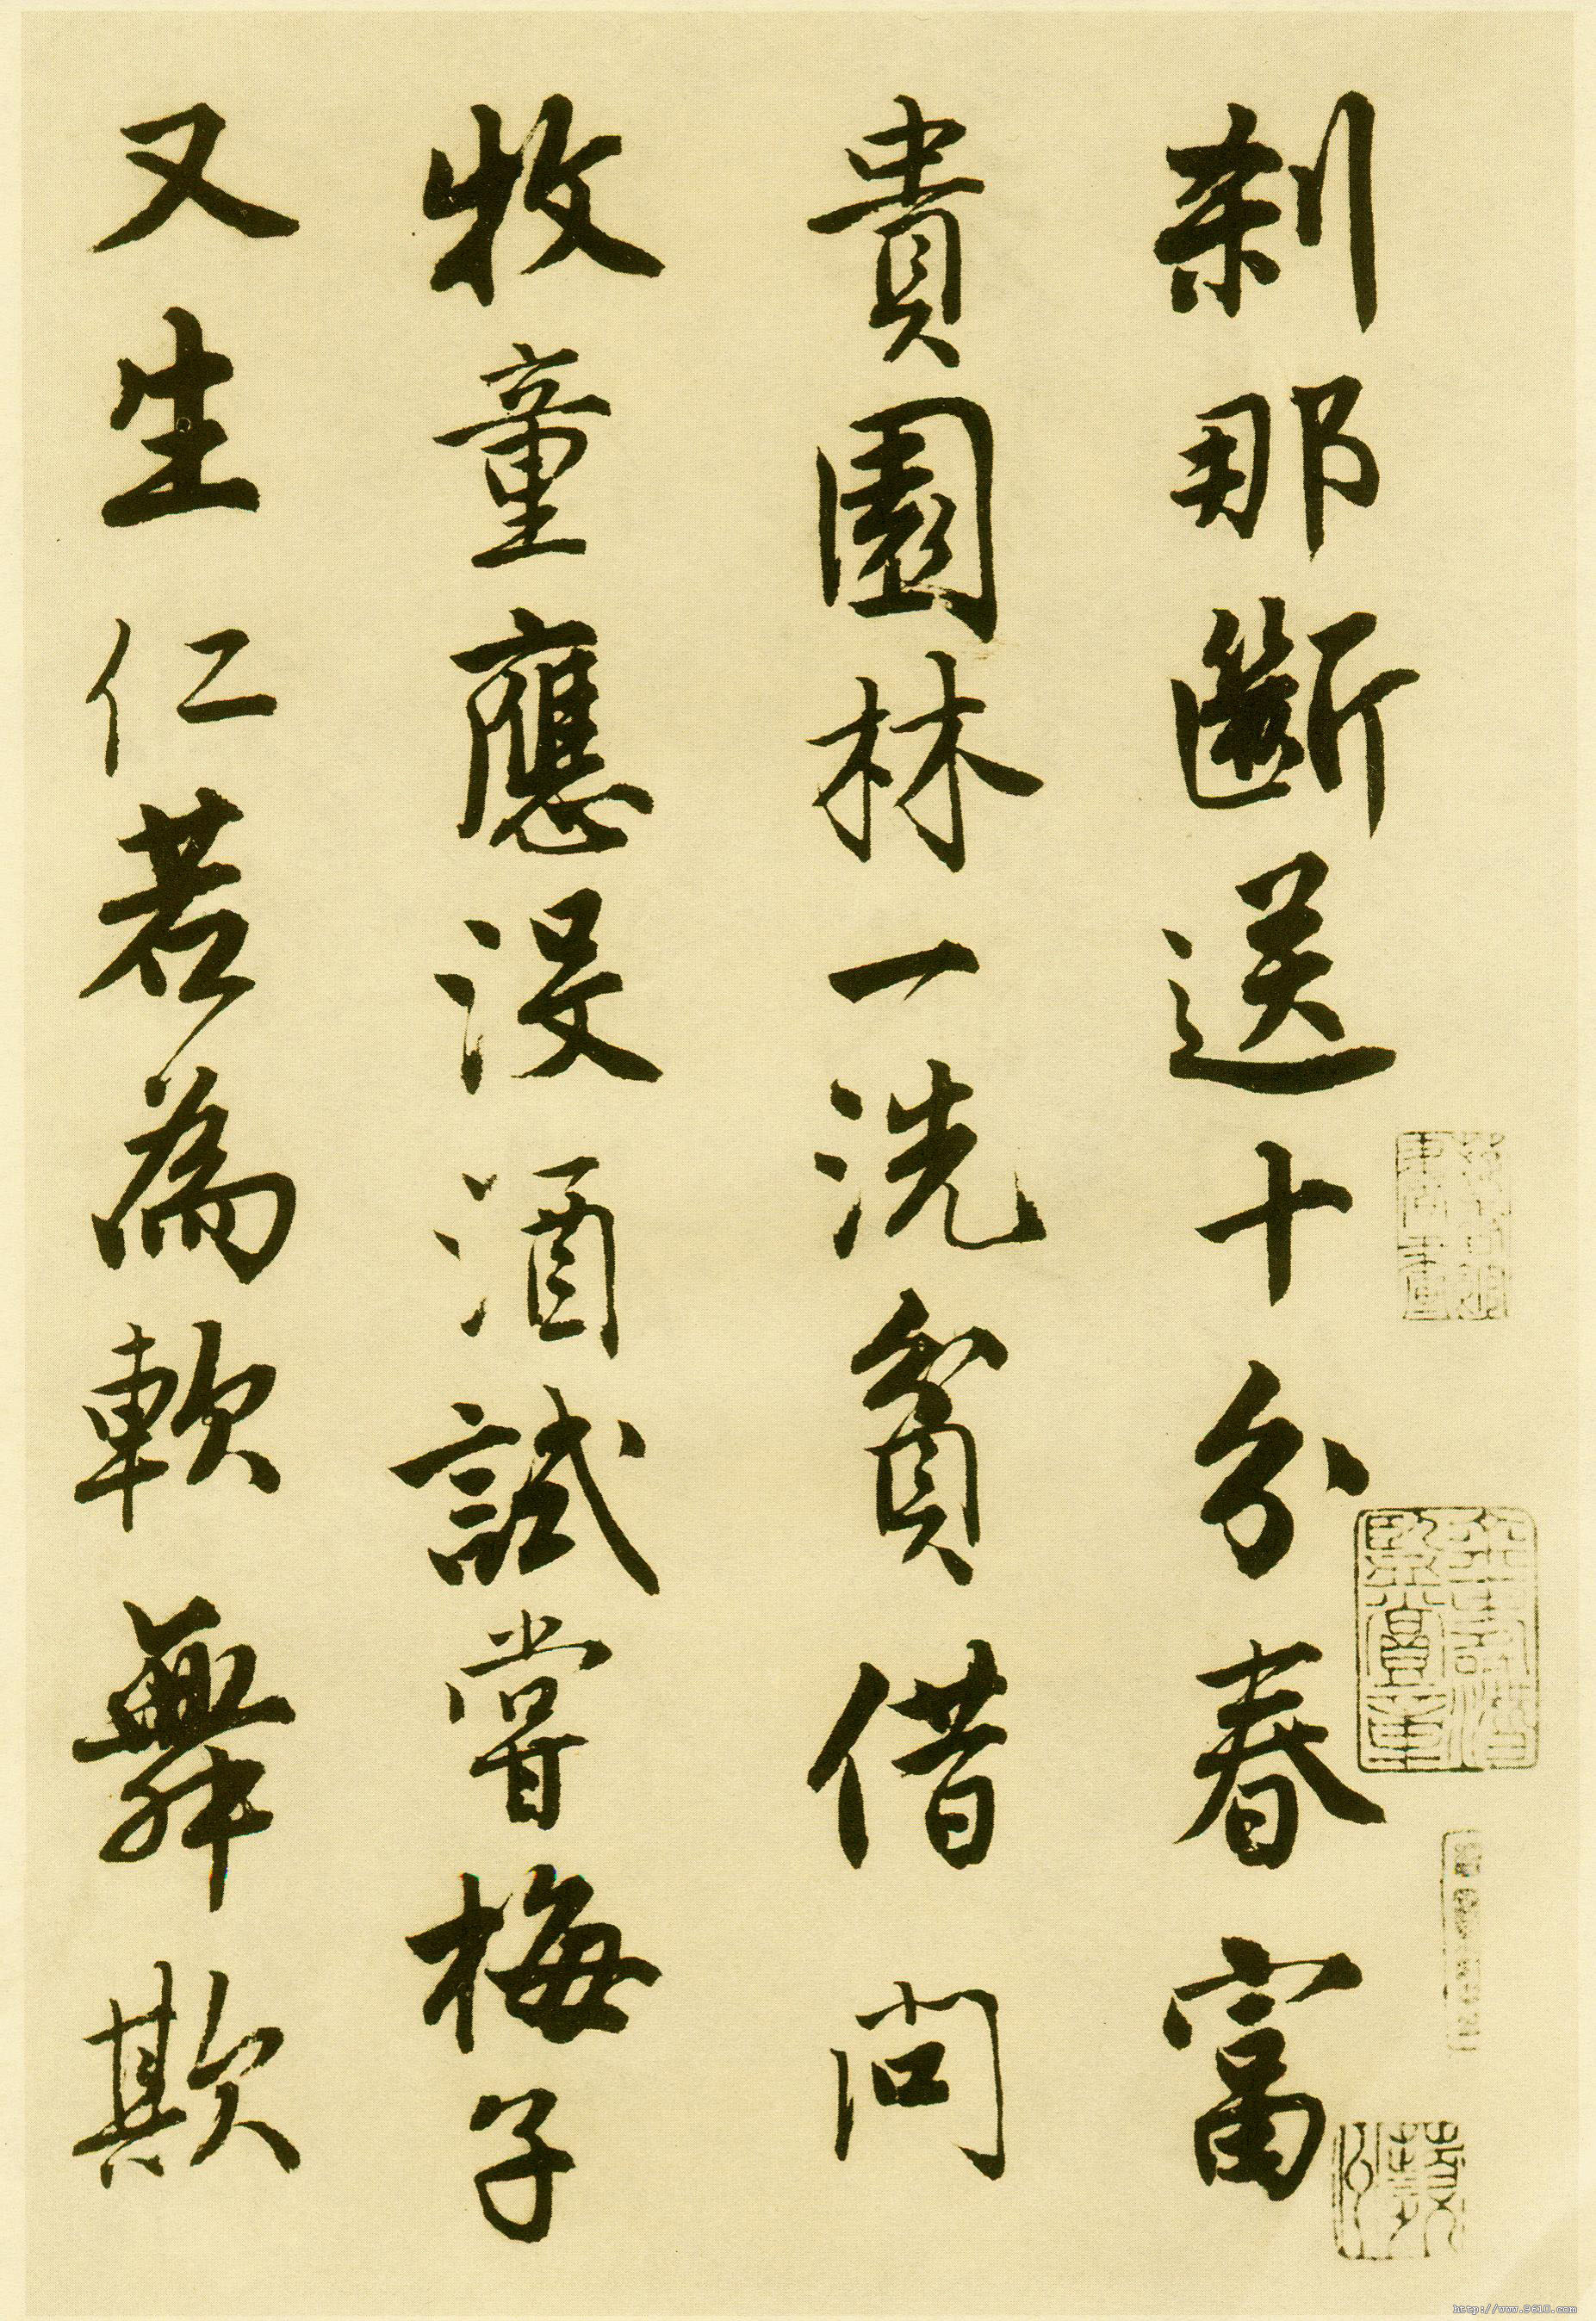 刹那斷送十分春富
貴園林一洗貧借問
牧童應沒酒試嘗梅子
又生仁若為軟舞欺
http://www.9610.com